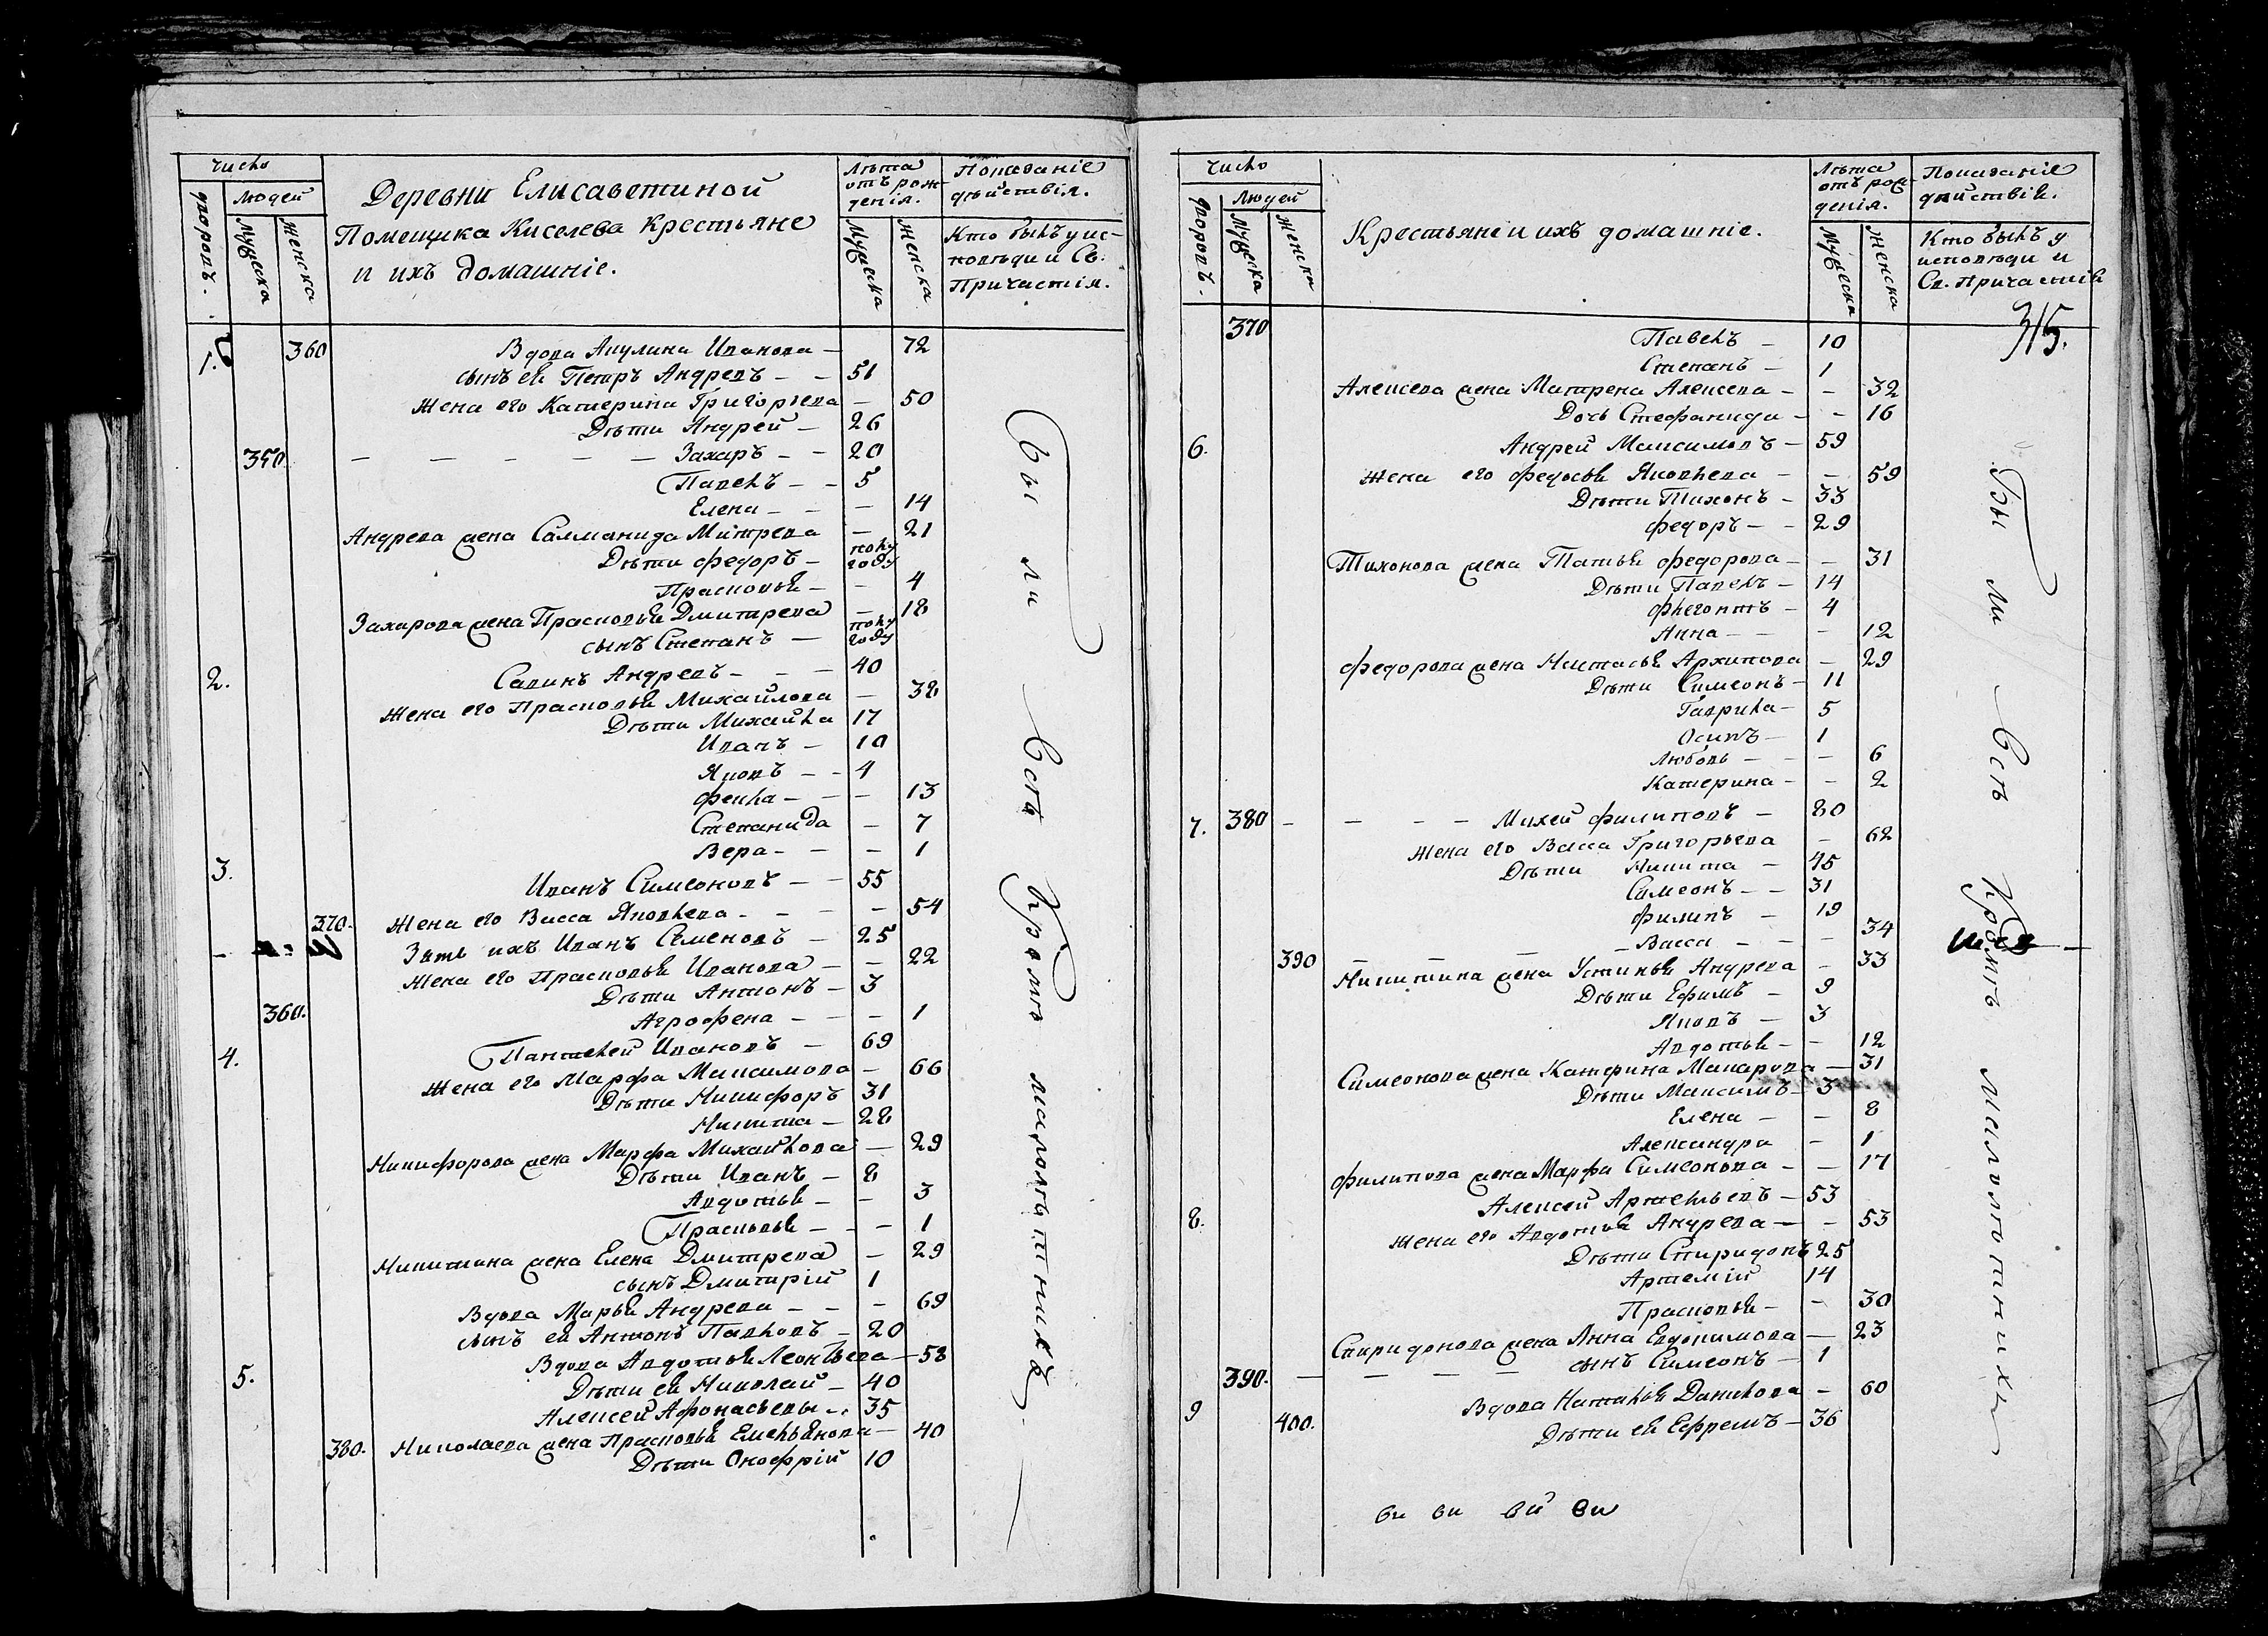 Число
дворовъ.
людей
мужеска
женска
Деревни Елисаветиной
Помещика Киселева Крестьяне
и ихъ домашніе.
Лѣта
отъ рож-
денія.
мужеска
женска
Показаніе
дѣйствія.
Кто былъ у ис-
повѣди и Св:
Причастія.
1. 360 Вдова Акулина Иванова — 72
сынъ ея Петръ Андревъ — — 51
Жена его Катерина Григорьева — 50
Дѣти Андрей — 26
350 — — — — — Захаръ — — 20
Павелъ — — 5
Елена — — — 14
Андрева жена Саламанида Митрева — 21
Дѣти Федоръ — полу году
Прасковья — — 4
Захарова жена Прасковья Дмитрева — 18
сынъ Степанъ — полу году
2. Савинъ Андревъ — — — 40
Жена его Прасковья Михайлова — 38
Дѣти Михайла 17
Иванъ — 10
Яковъ — — 4
Фекла — — — 13
Степанида — 7
Вера — — — 1
3. Иванъ Симеоновъ — — 55
370. Жена его Васса Яковлева — — — — 54
Зять ихъ Иванъ Семеновъ — 25
Жена его Прасковья Иванова — — 22
Дѣти Антонъ — 3
360. Агрофена — — — 1
4. Пантелей Ивановъ — 69
Жена его Марфа Максимова — 66
Дѣти Никифоръ 31
Никита — 28
Никифорова жена Марфа Михайлова — 29
Дѣти Иванъ — 8
Авдотья — — 3
Прасковья — — — 1
Никитина жена Елена Дмитрева — 29
сынъ Дмитрій 1
Вдова Марья Андрева — — — 69
сынъ ея Антонъ Павловъ — 20
5. Вдова Авдотья Леонтьева — 58
Дѣти ея Николай — 40
Алексей Афонасьевы — 35
380. Николаева жена Прасковья Емельянова — 40
Дѣти Онофрій 10
Были Всѣ Кромѣ малолѣтнихъ
Число
дворовъ.
людей
мужеска
женска
Крестьяне и ихъ домашніе.
Лѣта
отъ рож-
денія.
мужеска
женска
Показаніе
дѣйствія.
Кто былъ у
исповѣди и
Св. Причастія
315.
370 Павелъ — 10
Степанъ — 1
Алексева жена Матрена Алексева — — 32
Дочь Стефанида — — 16
6. Андрей Максимовъ — 59
Жена его Федосья Яковлева — — 59
Дѣти Тихонъ — 33
Федоръ — — 29
Тихонова жена Татья Федорова — — 31
Дѣти Павелъ — 14
Флегонтъ — 4
Анна — — — 12
Федорова жена Настасья Архипова — 29
Дѣти Симеонъ — 11
Гаврила — 5
Осипъ — 1
Любовь — — — 6
Катерина — — 2
7. 380 — — — — Михей Филиповъ — 80
Жена его Васса Григорьева — 62
Дѣти Никита — 45
Симеонъ — — 31
Филипъ — 19
Васса — — — 34
390 Никитина жена Устинья Андрева — 33
Дѣти Ефимъ — 9
Яковъ — 3
Авдотья — — 12
Симеонова жена Катерина Макарова — 31
Дѣти Максимъ — 3
Елена — — 8
Александра — 1
Филипова жена Марфа Симеонова — — 17
8. Алексей Артемьевъ — 53
Жена его Авдотья Андрева — — 53
Дѣти Спиридонъ 25
Артемій 14
Прасковья — — 30
Спиридонова жена Анна Евдокимова — 23
390. — — — — сынъ Симеонъ — 1
9 Вдова Наталья Данилова — 60
400. Дѣти ея Ефремъ — 36
Были Всѣ Кромѣ малолѣтнихъ
ви ви вй ви